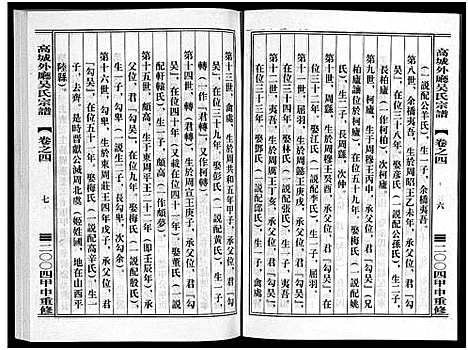 高城外廳吴氏宗譜 【 卷之四 六 二〇〇四甲申重修
（一説配公羊氏），生一子，余橋夷吾。
第八世，余橋夷吾，生於周昭王乙未年，承父位，君“勾吴”，
在位四十三年，娶彦氏（一説配公孫氏），生二子，
長柯盧（一作柯柏），次柯廬。
第九世，柯廬，生於周穆王丙申，承父位，君“勾吴”（兄
柏廬讓位於柯廬），在位五十九年，娶梅氏（一説配姚
氏），生二子，長周繇，次仲
第十世，周繇，生於周穆王丁卯，承父位，君“勾吴”，
在位三十二年，娶江氏（一説配尹氏），生一子，屈羽。
第十一世，屈羽，生於周懿王庚戌，承父位，君“勾吴”，
在位三十四年，娶林氏（一説配張氏），生一子，夷吾。
第十二世，夷吾，生於周厲王丁亥，承父位，君“勾吴”，
在位三十三年，娶鄧氏（一説配氏），生一子，禽處。
第十三世，禽處，生於周共和五年甲子，承父位，君“勾
吴”，在位三十九年，娶彭氏（一説配黄氏），生一子，
轉（一作君轉）。
第十四世，轉（又作柯轉），生於周宣王庚子，承父位，君“勾
吴”，在位四十年（又載在位四十年），娶董氏（一説
配軒轅氏），生一子，頗高（一作頗夢）。
第十五世，頗高，生於東周平王二十二年（即壬辰年），承
父位，君“勾吴”，在位九年，娶梅氏（一説配殷氏），
生一子，勾卑（一説生二子，長勾卑，次勾余）。
第十六世，勾卑，生於東周莊王四年戊子，承父位，君
“勾吴”，在位五十一年，娶梅氏（一説配），生一
子，去齊，是時晋獻公滅周北虞（姬姓國，地在山西平
陸縣）。
高城外廳吴氏宗譜 【 卷之四 七 二〇〇四甲申重修